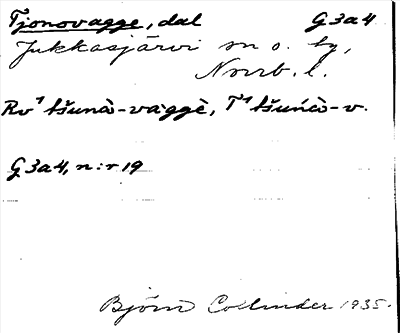 Tjonovagge, dal G3a4
Jukkasjärvi sn o. by,
Norrb. l.
Rv¹ tšunò-vaggè, T¹ tšuńò-v.
G3a4, n:r 19
Björn Collinder 1935.